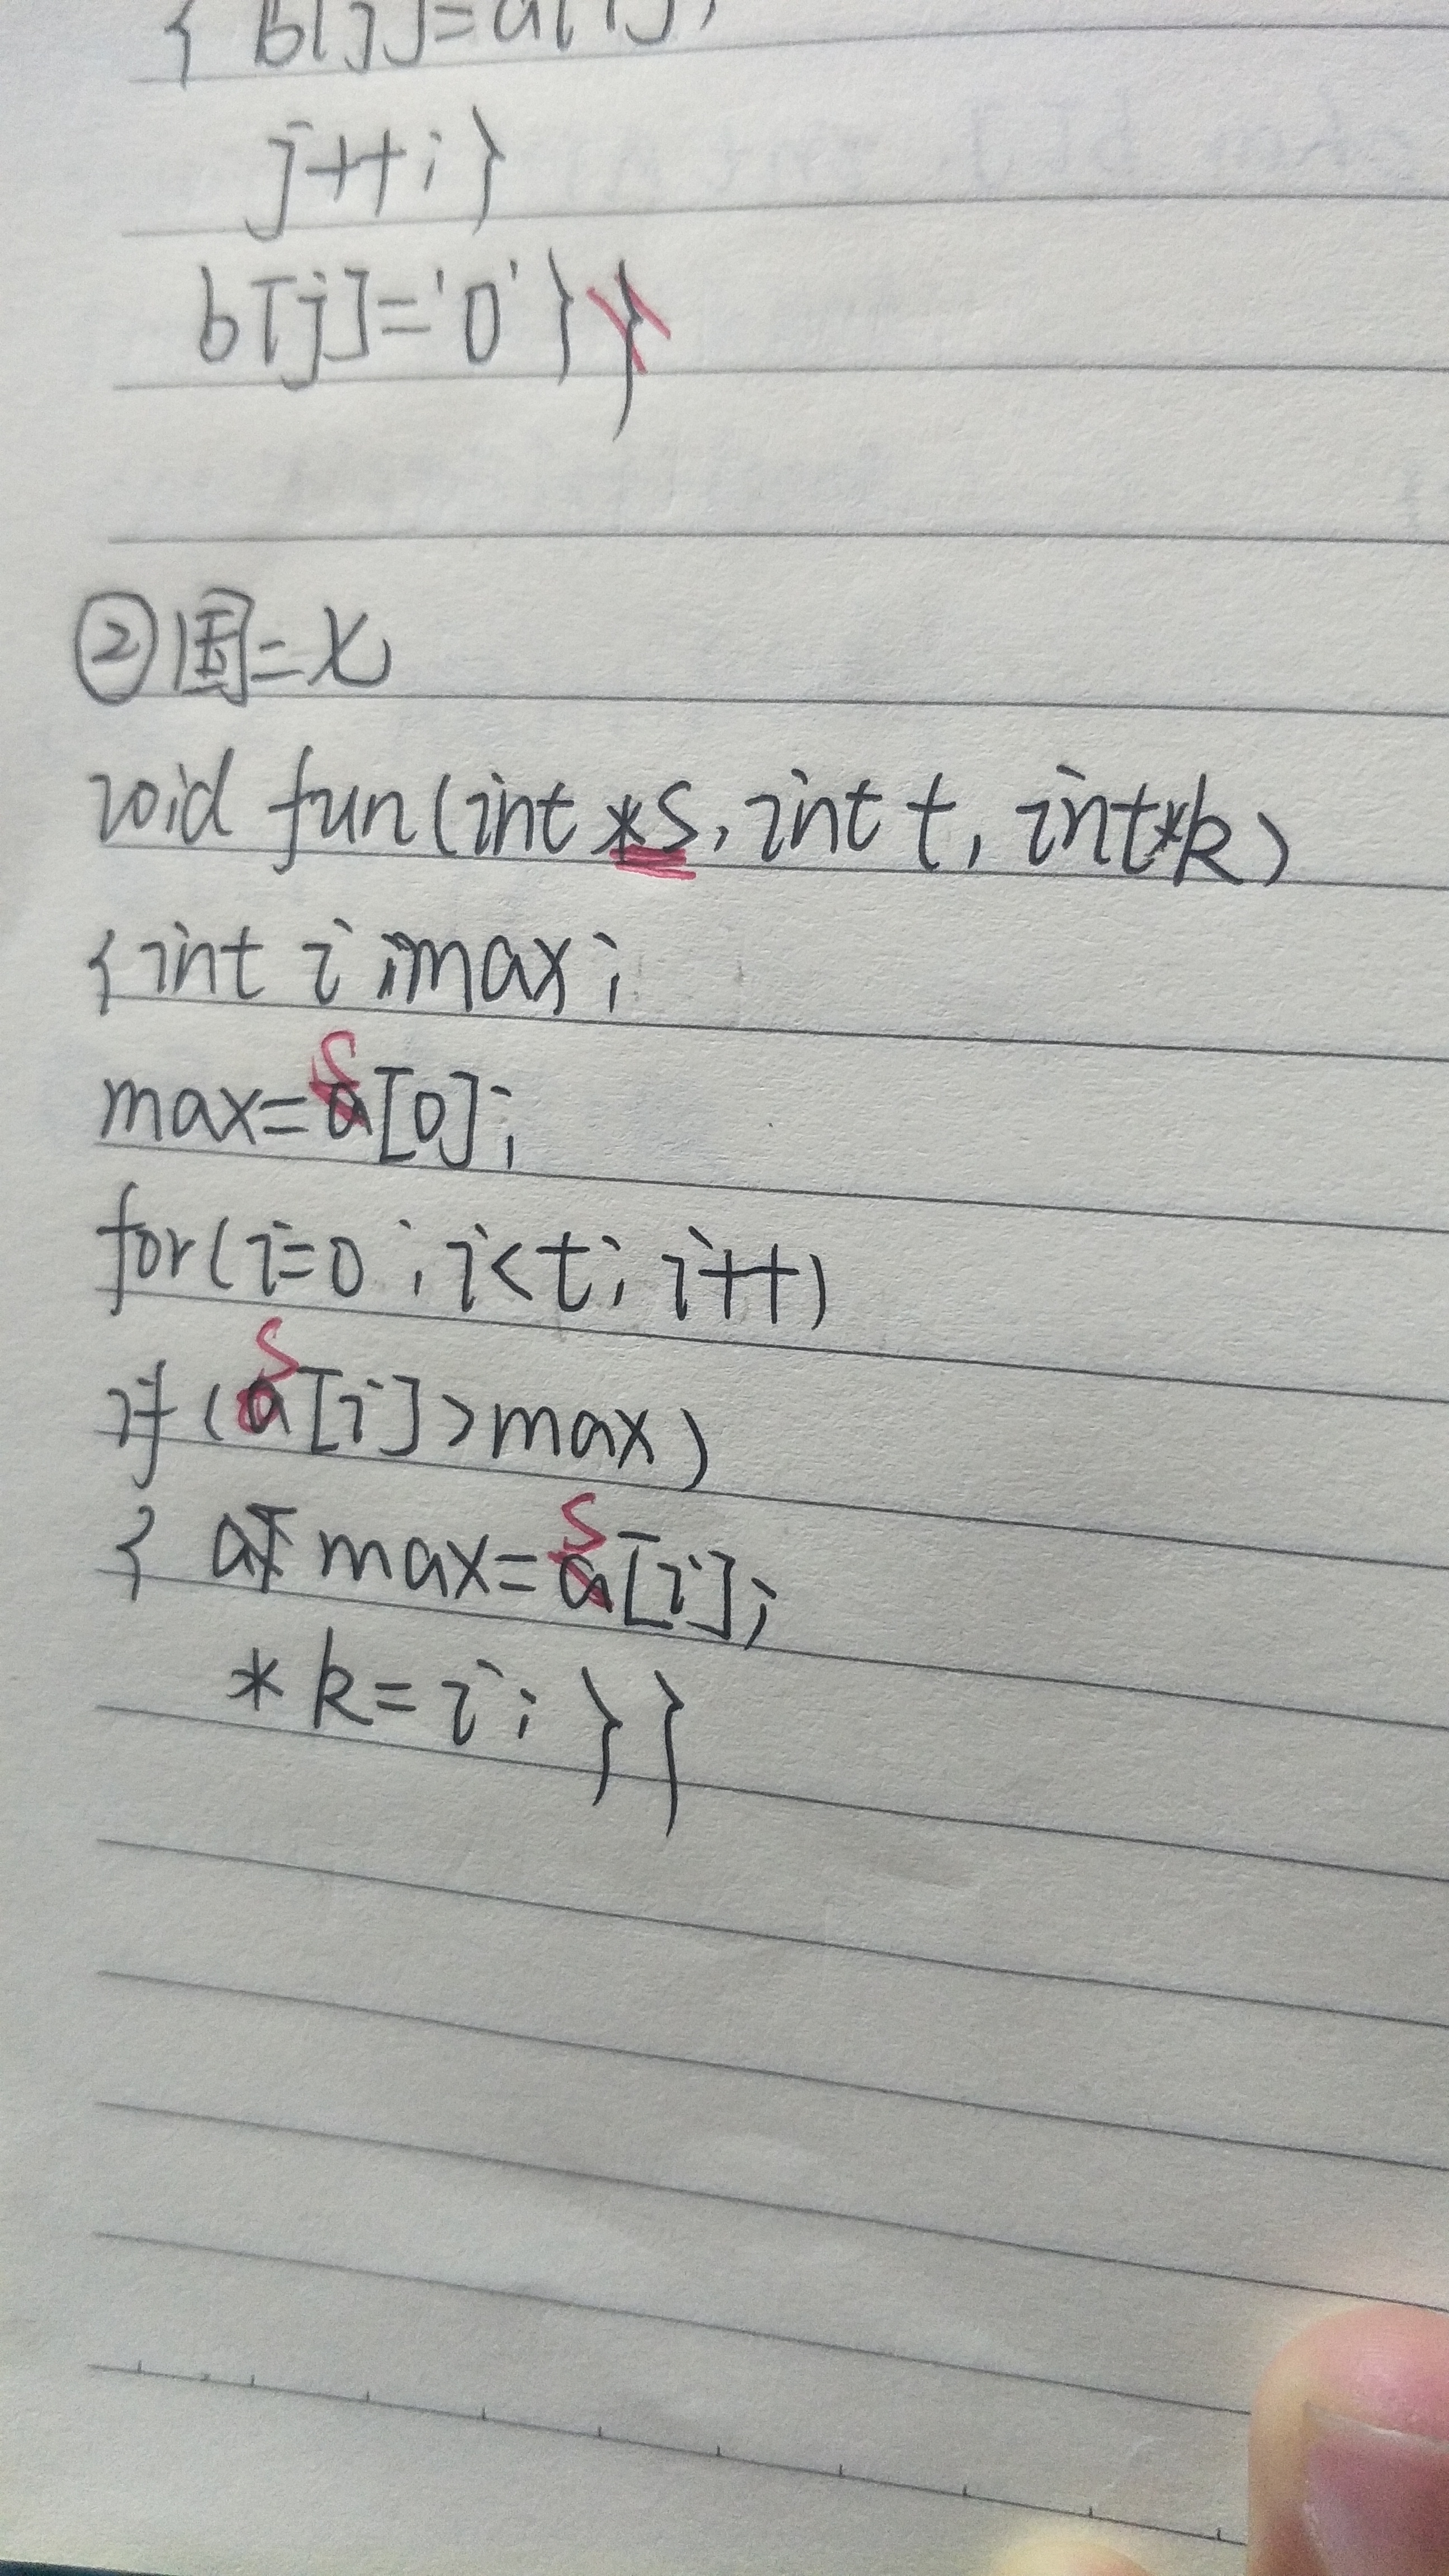 { b[j]=a[i];
j++;}
b[j]='0'}}
② 国=x
void fun(int *s, int t, int *k)
{int i, max;
max=s[0];
for(i=0; i<t; i++)
if(s[i]>max)
{ max=s[i];
*k=i; }}